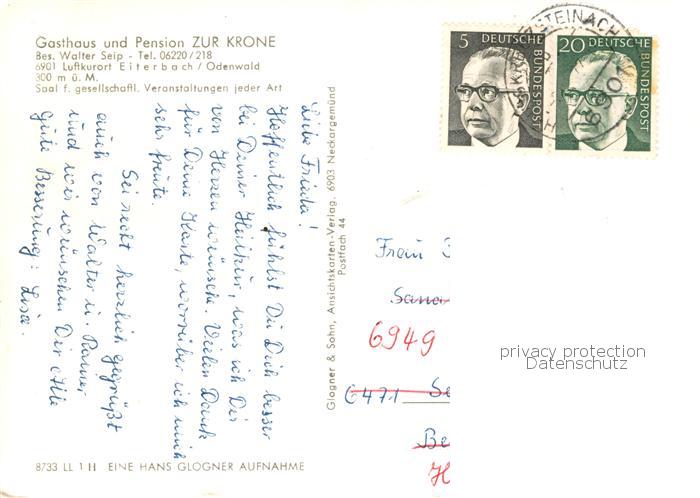 Gasthaus und Pension ZUR KRONE
Bes. Walter Seip - Tel. 06220/218
6901 Luftkurort Eiterbach / Odenwald
300 m ü. M.
Saal f. gesellschaftl. Veranstaltungen jeder Art
Liebe Frieda!
Hoffentlich fühlst Du Dich besser
bei Deiner Heilkur, was ich Dir
von Herzen wünsche. Vielen Dank
für Deine Karte, worüber ich mich
sehr freute.
Sei recht herzlich gegrüßt
auch von Walter u. Rainer
und wir wünschen Dir alle
Gute Besserung: Lisa.
8733 LL 1 H EINE HANS GLOGNER AUFNAHME
Glogner & Sohn, Ansichtskarten-Verlag, 6903 Neckargemünd
Postfach 44
5
DEUTSCHE BUNDESPOST
20
DEUTSCHE BUNDESPOST
STEINACH
Frau
Sana
6949
6471 Se
Be
H
privacy protection
Datenschutz